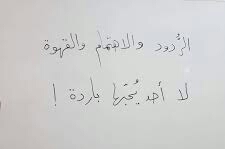 الرُدود والاهتمام والقهوة
لا أحد يُحبّها باردة !